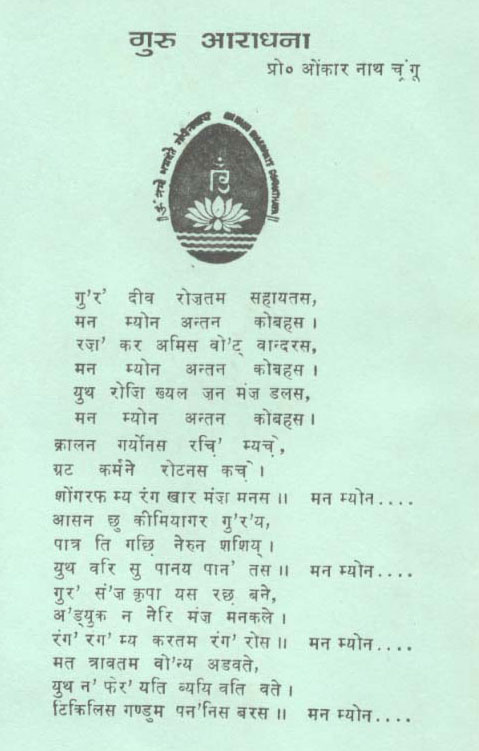 गुरु आराधना
प्रो० ओंकार नाथ च्रंगू
गु'र' दीव रोज़तम सहायतस,
मन म्योन अन्तन कोबहस ।
रज़ा' कर अमिस वो'ट् वान्दरस,
मन म्योन अन्तन कोबहस ।
युथ रोज़ि ख्यल ज़न मंज़ डलस,
मन म्योन अन्तन कोबहस ।
क्रालन गर्योनस रच़ि' म्यच़े,
ग्रट कर्मने रोटनस कच़े ।
शोंगरफ म्य रंग खार मंज़ मनस ॥ मन म्योन....
आसन छु कीमियागर गु'र'य,
पात्र ति गछि नेरुन शशिय् ।
युथ वरि सु पानय पान' तस ॥ मन म्योन....
गुर' सं'ज़ कृपा यस रछ बने,
अ'ड्युक न नेरि मंज़ मनकले ।
रंग' रग' म्य करतम रंग' रोस ॥ मन म्योन....
मत त्रावतम वो'न्य अडवते,
युथ न' फेर' यति व्ययि वति वते ।
टिकिलिस गण्डुम पन'निस बरस ॥ मन म्योन....